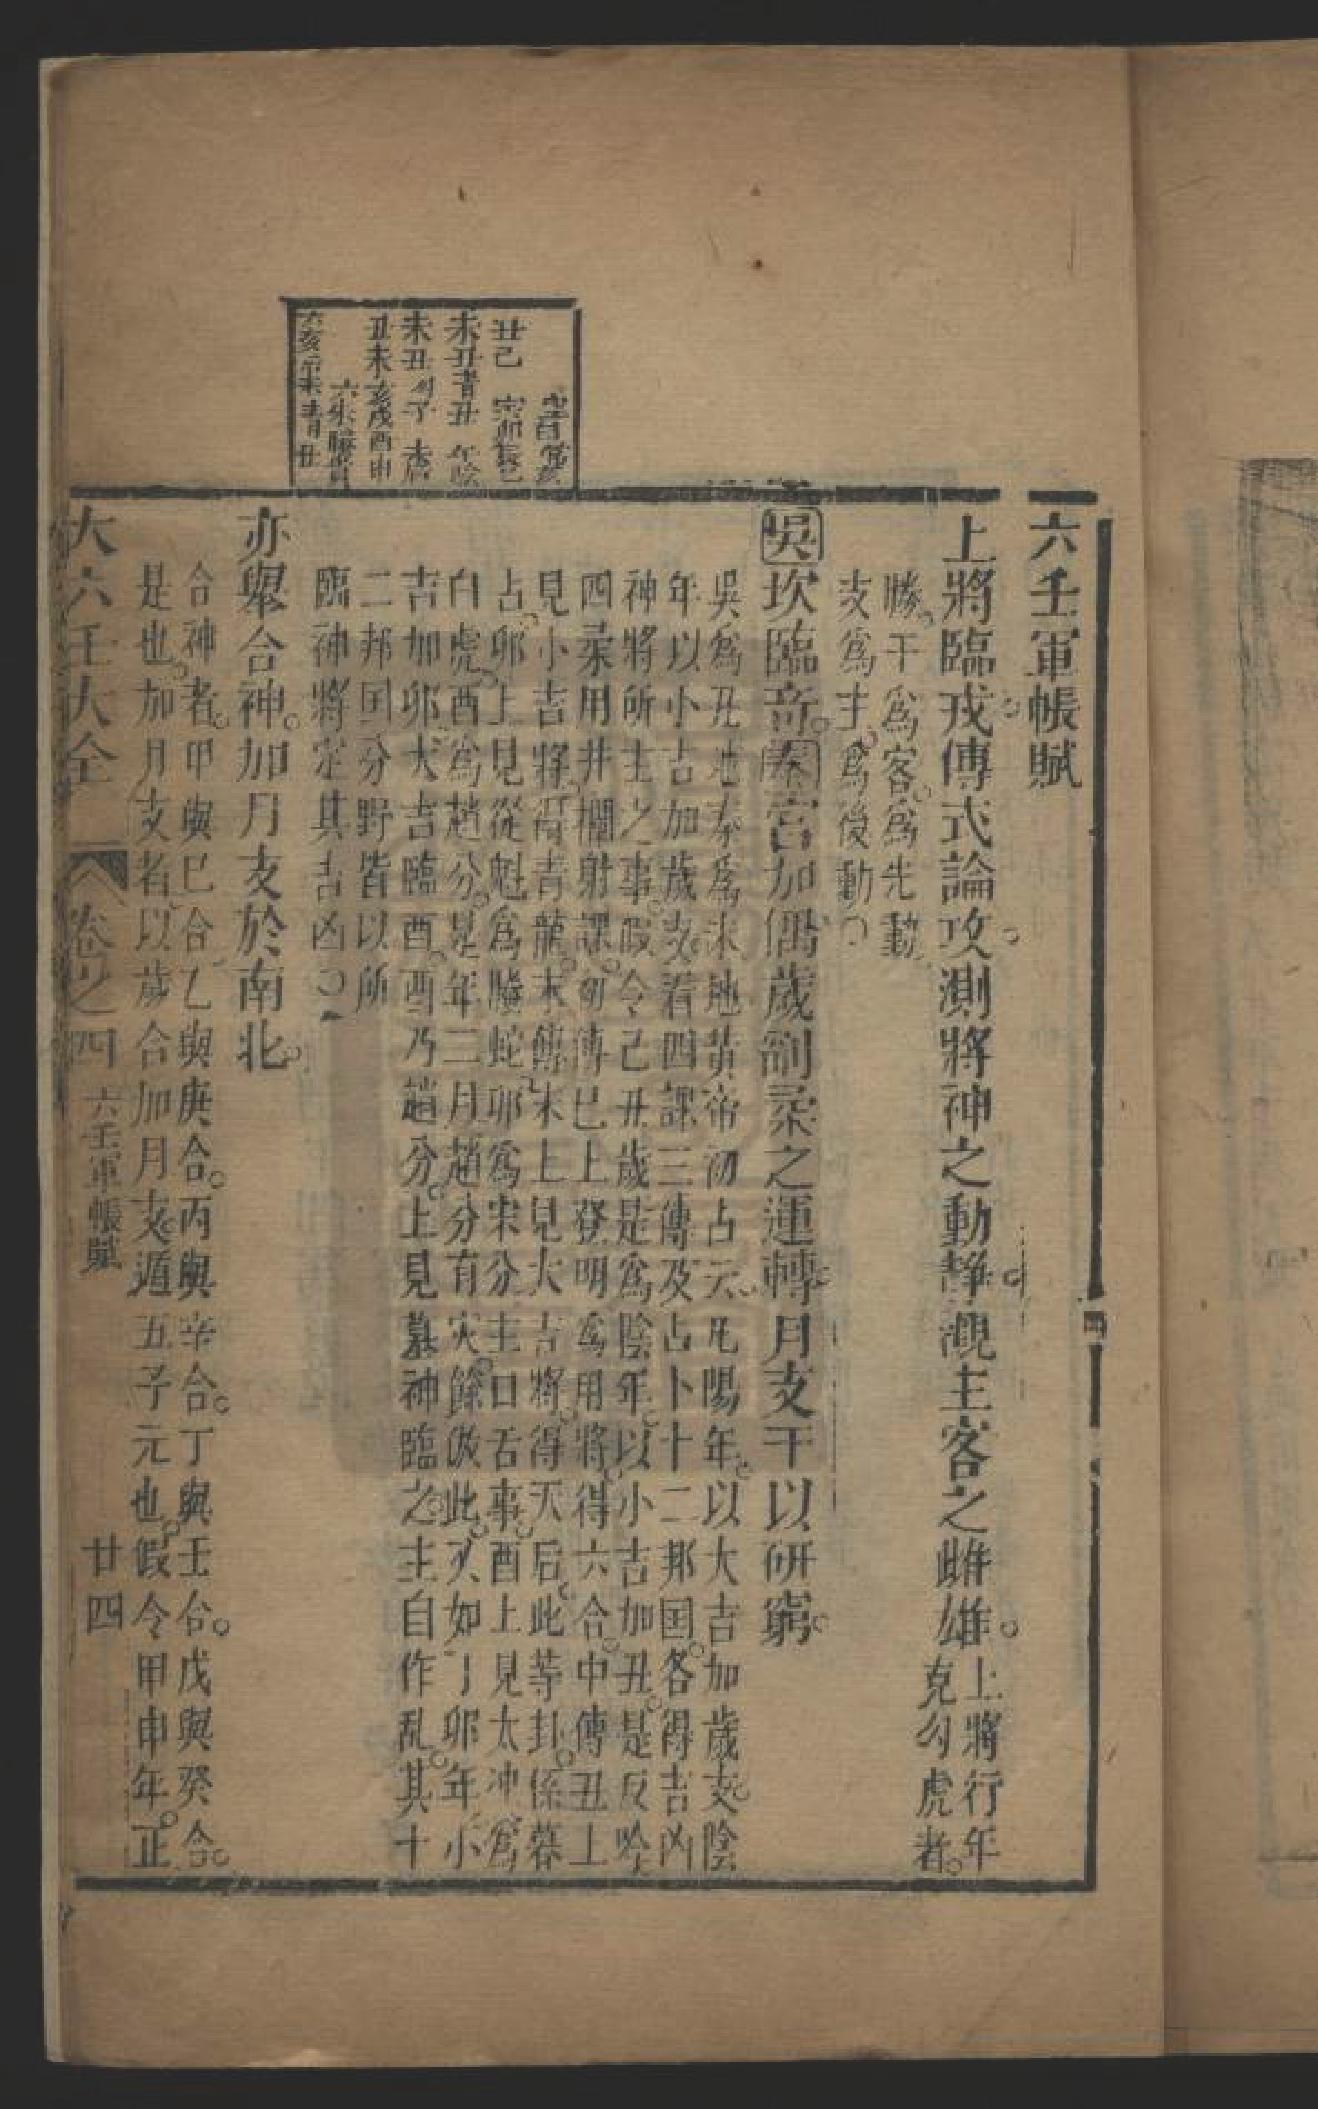 六壬軍帳賦
上將臨戎傳式論攻測將神之動静觀主客之雌雄上將行年
克勾虎者
勝干爲客爲先動
支爲主爲後動
吳坎臨竒秦宫加偶歲剛柔之運轉月支干以研窮
吳爲丑地秦爲未地黄帝初占云凡陽年以大吉加歲支陰
年以小吉加歲支看四課三傳及占卜十二邦国各得吉凶
神將所主之事假令己丑歲是爲陰年以小吉加丑是反吟
四柔用井欄射課初傳巳上登明爲用將得六合中傳丑上
見小吉將得青龍末傳未上見大吉將得天后此等卦係暮
占卯上見從魁爲螣蛇卯爲宋分主口舌事酉上見太冲爲
白虎酉爲趙分是年二月趙分有灾餘倣此又如丁卯年小
吉加卯大吉臨酉酉乃趙分上見墓神臨之主自作乱其十
二邦国分野皆以所
臨神將定其吉凶
亦舉合神加月支於南北
合神者甲與巳合乙與庚合丙與辛合丁與壬合戊與癸合
是也加月支者以歲合加月支遁五子元也假令甲申年正
大六壬大全
卷之四
六壬軍帳賦
廿四
丑己
未丑青丑
未丑
丑未亥戌酉申